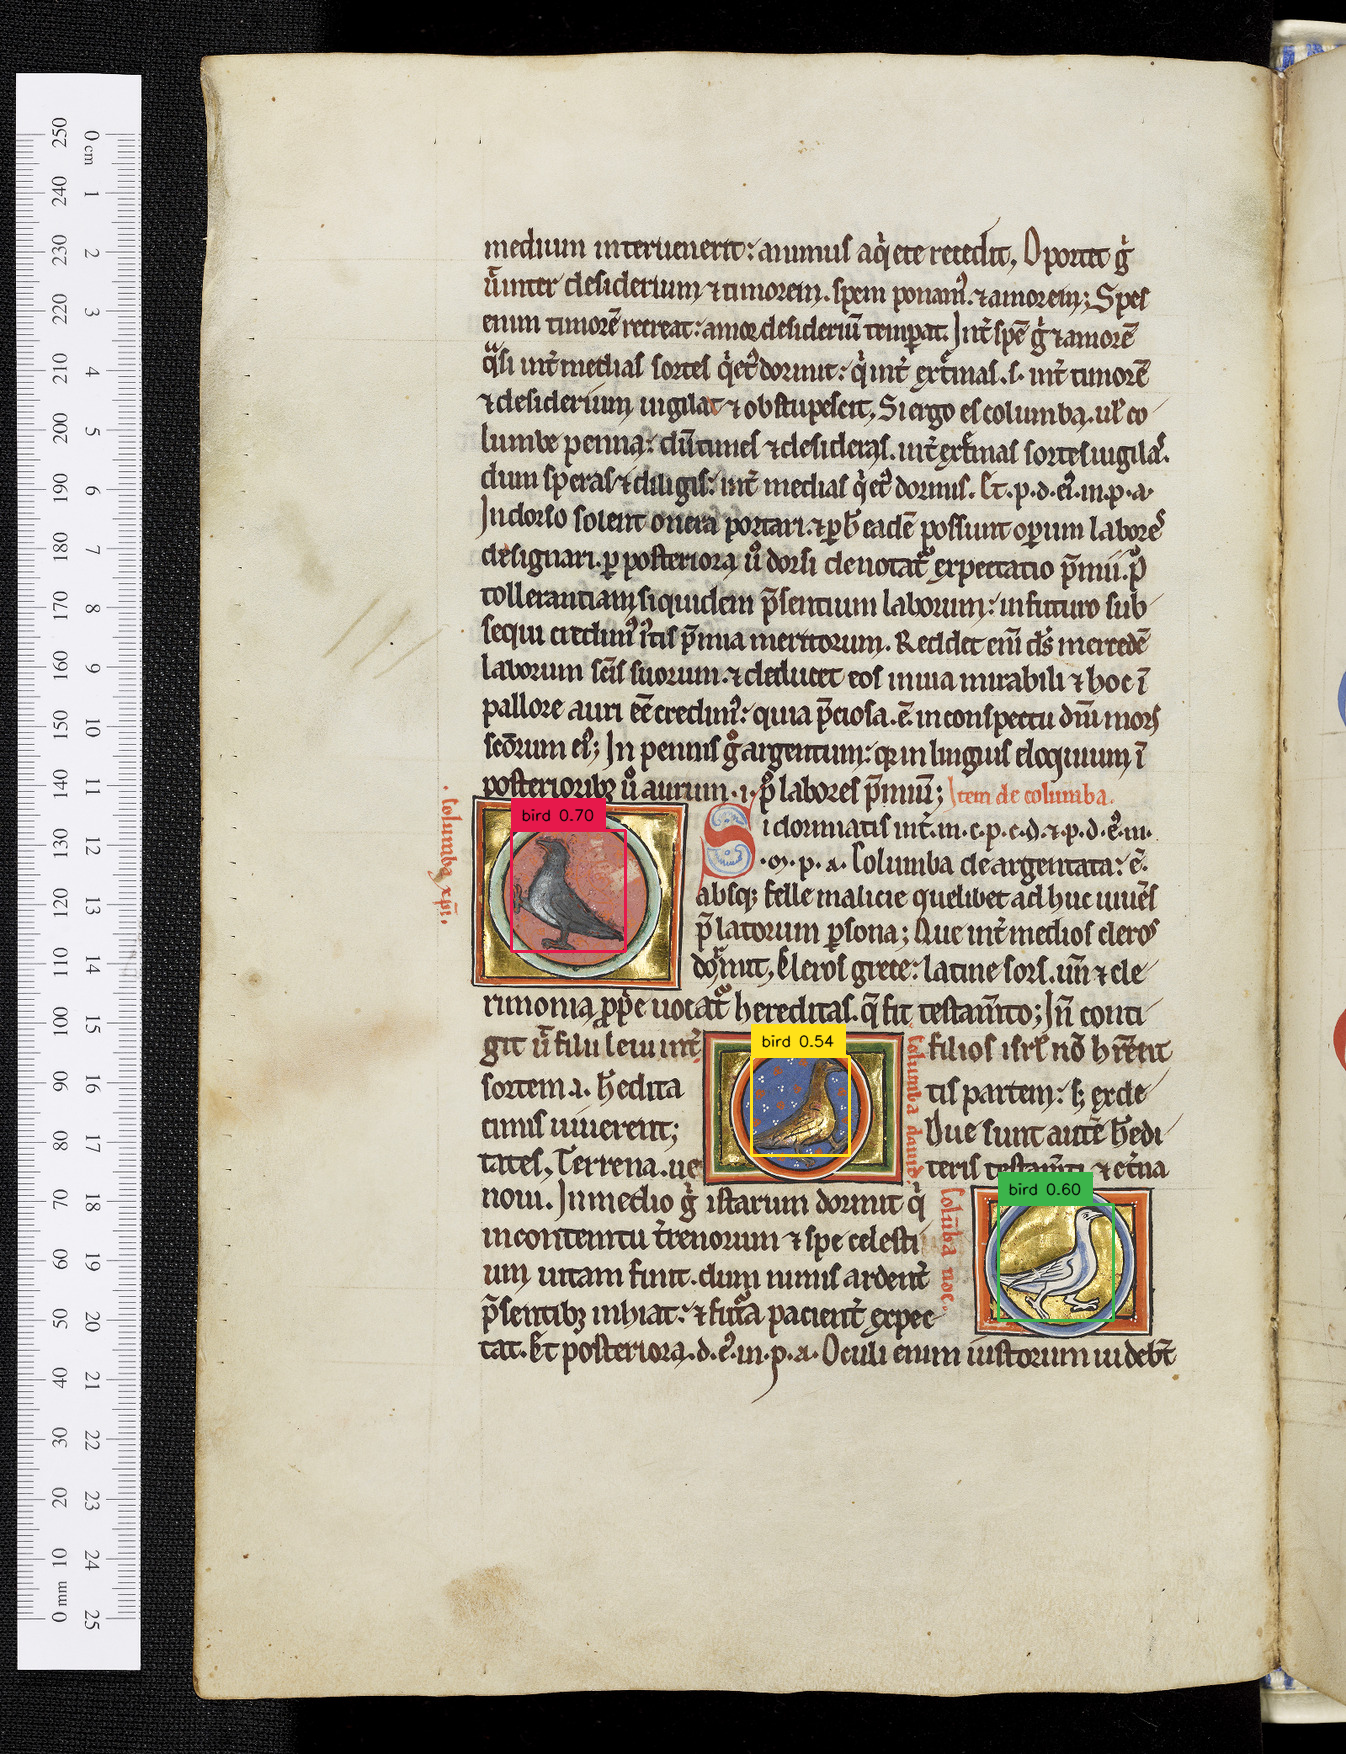 medium interuenerit: animus aq̇ ete recedit, Oportet g̊
ů inter desiderium ⁊ timorem. spem ponam᷒. ⁊ amorem; Spes
enim timorē recreat: amor desideriū temperat. Int̄ spē g̊ ⁊ amorē
q̊si int̄ medias sortes q̇etꝰ dormit: q̇ int̄ ext̄mas .s. int̄ timorē
⁊ desiderium uigilat ⁊ obstupescit, Si ergo es columba. ul̄ co
lumbe penna: dū times ⁊ desideras. int̄ ext̄mas sortes uigilas.
dum speras ⁊ diligis: int̄ medias q̇etꝰ dormis. Et .p.d.eꝰ.in.p.a.
In dorso solent onera portari. ⁊ ꝑ h̄ eadē possunt operum labores
designari. ꝑ posteriora ů dorsi denotat᷑ expectatio p̄mii. p
tollerantiam siquidem p̄sentium laborum: in futuro sub
sequi credimꝰ iustis p̄mia meritorum. Reddet eni ds̄ mercedē
laborum scīs suorum. ⁊ deducet eos in uia mirabili ⁊ hoc ī
pallore auri eē credimꝰ: quia p̄ciosa .ē. in conspectu dn̄i mors
scōrum eiꝰ; In pennis g̊ argentum: q̄ in linguis eloquium ī
posteriorib; ů aurum .i. p̊ labores p̄mium; Item de columba.
.Columba xp̄i.
Si dormiatis int̄.m.c.p.c.d.⁊.p.d.eꝰ.in.
.p.a. Columba deargentata: ē.
absq; felle malicie quelibet adhuc uiuēs
p̄latorum ꝑsona; Que int̄ medios cleros
dormit, Cleros grece: latine sors. un̄ ⁊ cle
rimonia ꝓpe uocat᷑ hereditas. q̄ fit testam̄to; In̄ conti
git ů filii leui int̄ filios isrl̄ nō hr̄ent
columba dauid
sortem .a. hedita tis partem: s; ex de
cimis uiuerent; Due sunt autē hedi
tates, Terrena .ue teris testam̄ti ⁊ et̄na
noui. In medio g̊ istarum dormit q̇
colūba noe.
in contemtu t̄renorum ⁊ spe celesti
um uitam finit. dum nimis ardent̄
p̄sentib; inhiat: ⁊ futura pacient̄ expec
tat. Et posteriora.d.eꝰ.in.p.a. Oculi enim iustorum uidebt̄
250 240 230 220 210 200 190 180 170 160 150 140 130 120 110 100 90 80 70 60 50 40 30 20 10 0 mm
0 cm 1 2 3 4 5 6 7 8 9 10 11 12 13 14 15 16 17 18 19 20 21 22 23 24 25
bird 0.70
bird 0.54
bird 0.60